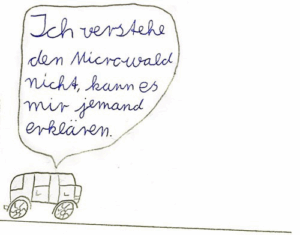 Ich verstehe
den Microwald
nicht, kann es
mir jemand
erklären.